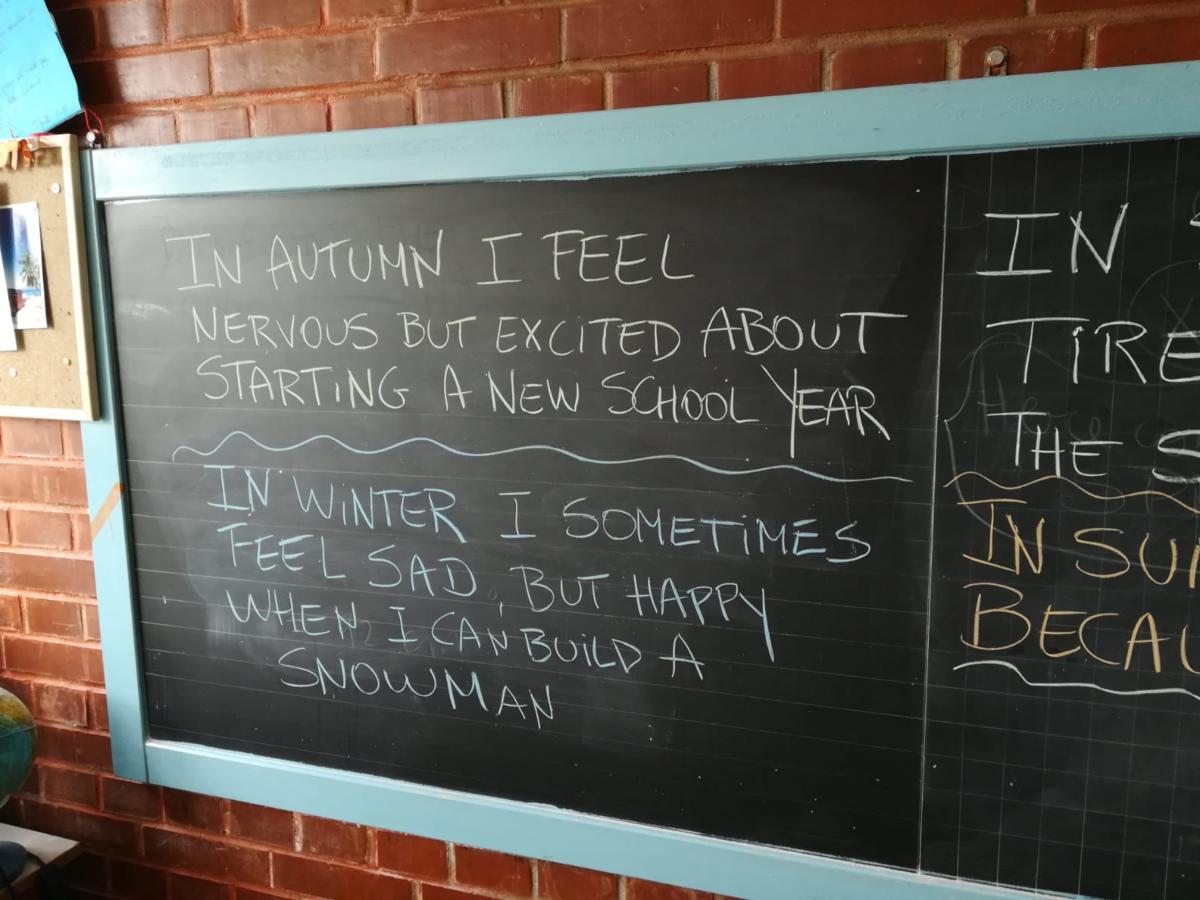 IN AUTUMN I FEEL
NERVOUS BUT EXCITED ABOUT
STARTING A NEW SCHOOL YEAR
IN WINTER I SOMETIMES
FEEL SAD, BUT HAPPY
WHEN I CAN BUILD A
SNOWMAN
IN
THE
IN